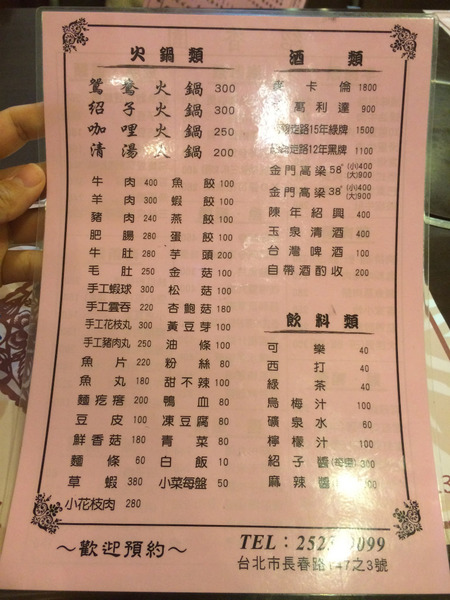 火鍋類
鴛鴦火鍋 300
紹子火鍋 300
咖哩火鍋 250
清湯火鍋 200
牛肉 400
羊肉 300
豬肉 240
肥腸 280
牛肚 280
毛肚 250
手工蝦球 300
手工雲吞 220
手工花枝丸 300
手工豬肉丸 250
魚片 220
魚丸 180
麵疙瘩 200
豆皮 100
鮮香菇 180
麵條 60
草蝦 380
小花枝肉 280
魚餃 100
蝦餃 100
燕餃 100
蛋餃 100
芋頭 200
金菇 100
松菇 100
杏鮑菇 180
黃豆芽 100
油條 100
粉絲 80
甜不辣 100
鴨血 80
凍豆腐 80
青菜 80
白飯 10
小菜每盤 50
酒類
卡倫 1800
萬利達 900
走路15年綠牌 1500
走路12年黑牌 1100
金門高梁58° (小)400 (大)900
金門高梁38° (小)400 (大)900
陳年紹興 400
玉泉清酒 400
台灣啤酒 100
自帶酒酌收 200
飲料類
可樂 40
西打 40
綠茶 40
烏梅汁 100
礦泉水 60
檸檬汁 100
紹子醬 300
麻辣醬
～歡迎預約～
TEL：252 9099
台北市長春路147之3號